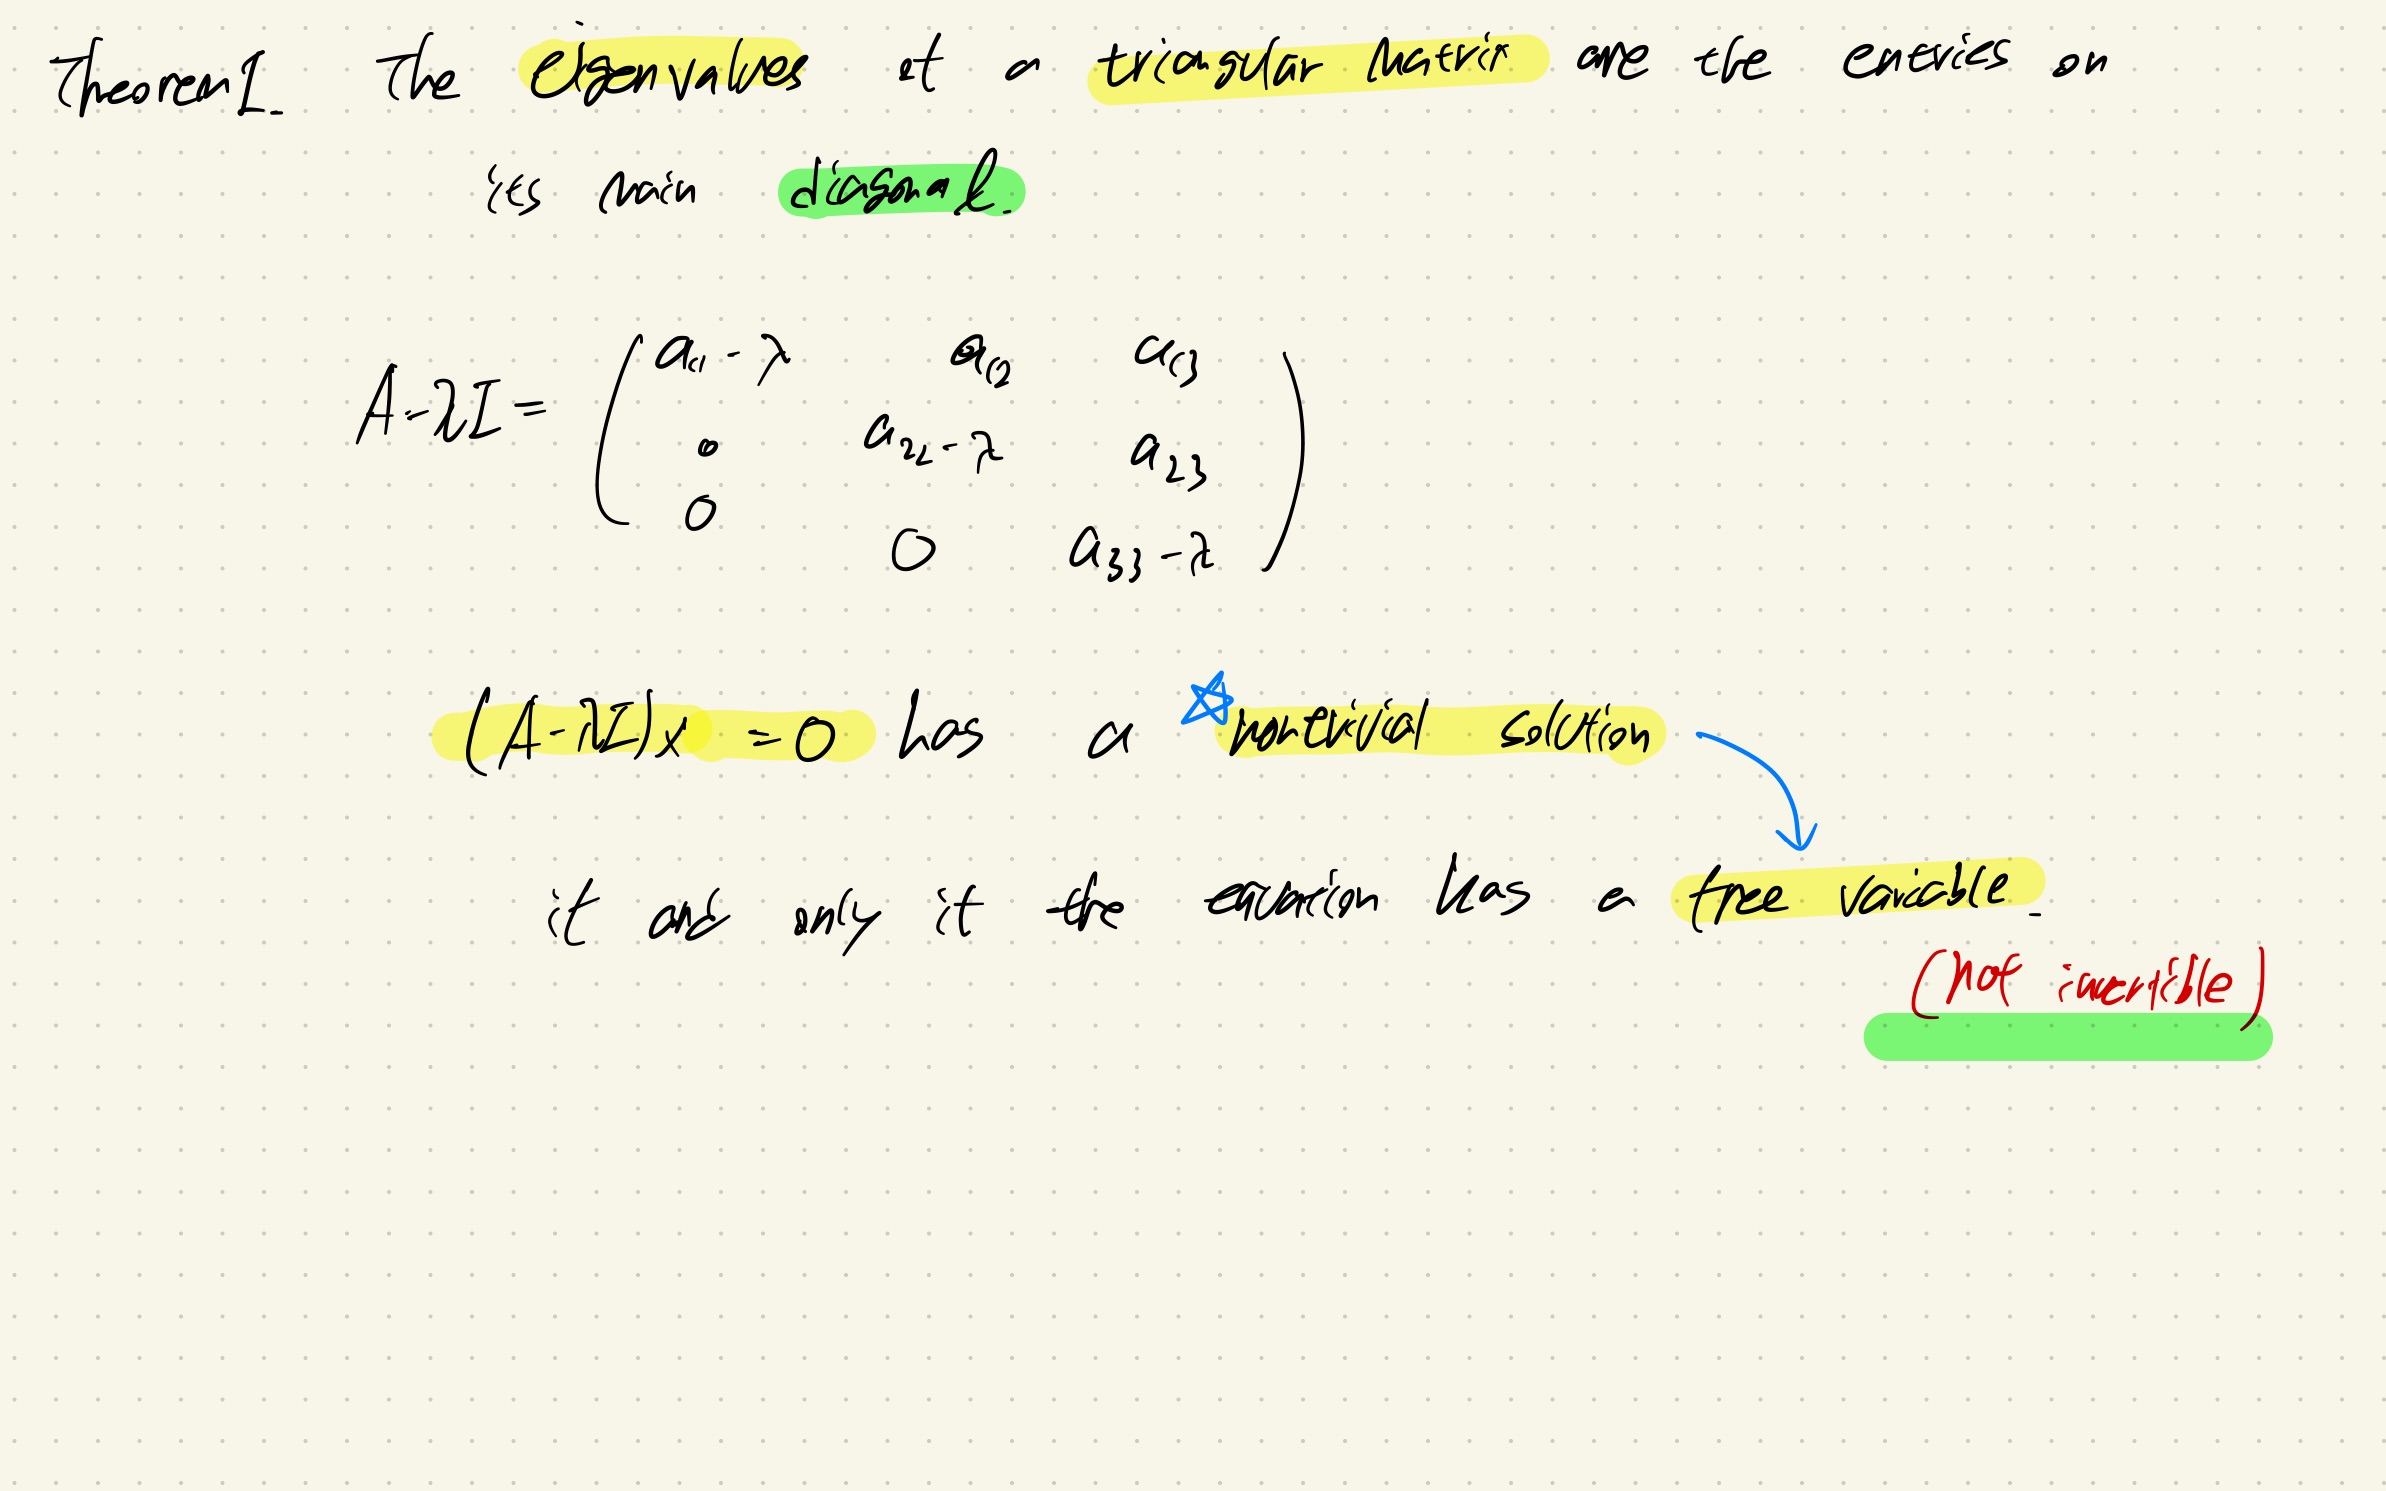 Theorem 1. The eigenvalues of a triangular matrix are the entries on
its main diagonal.
A-λI = ( a₁₁-λ a₁₂ a₁₃
0 a₂₂-λ a₂₃
0 0 a₃₃-λ )
(A-λI)x = 0 has a ☆nontrivial solution
if and only if the equation has a free variable.
(not invertible)